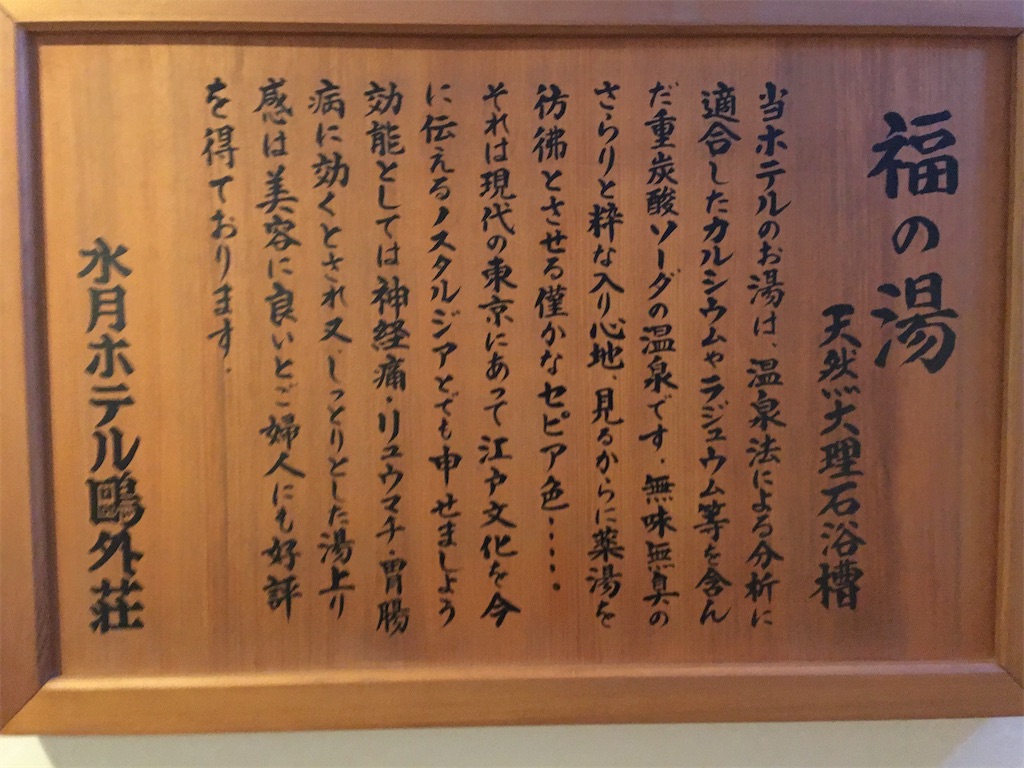 福の湯
天然大理石浴槽
当ホテルのお湯は、温泉法による分析に
適合したカルシウムやラジュウム等を含ん
だ重炭酸ソーダの温泉です。無味無臭の
さらりと粋な入り心地、見るからに薬湯を
彷彿とさせる僅かなセピア色・・・・。
それは現代の東京にあって江戸文化を今
に伝えるノスタルジアとでも申せましょう
効能としては神経痛・リュウマチ・胃腸
病に効くとされ又、しっとりとした湯上り
感は美容に良いとご婦人にも好評
を得ております。
水月ホテル鷗外荘